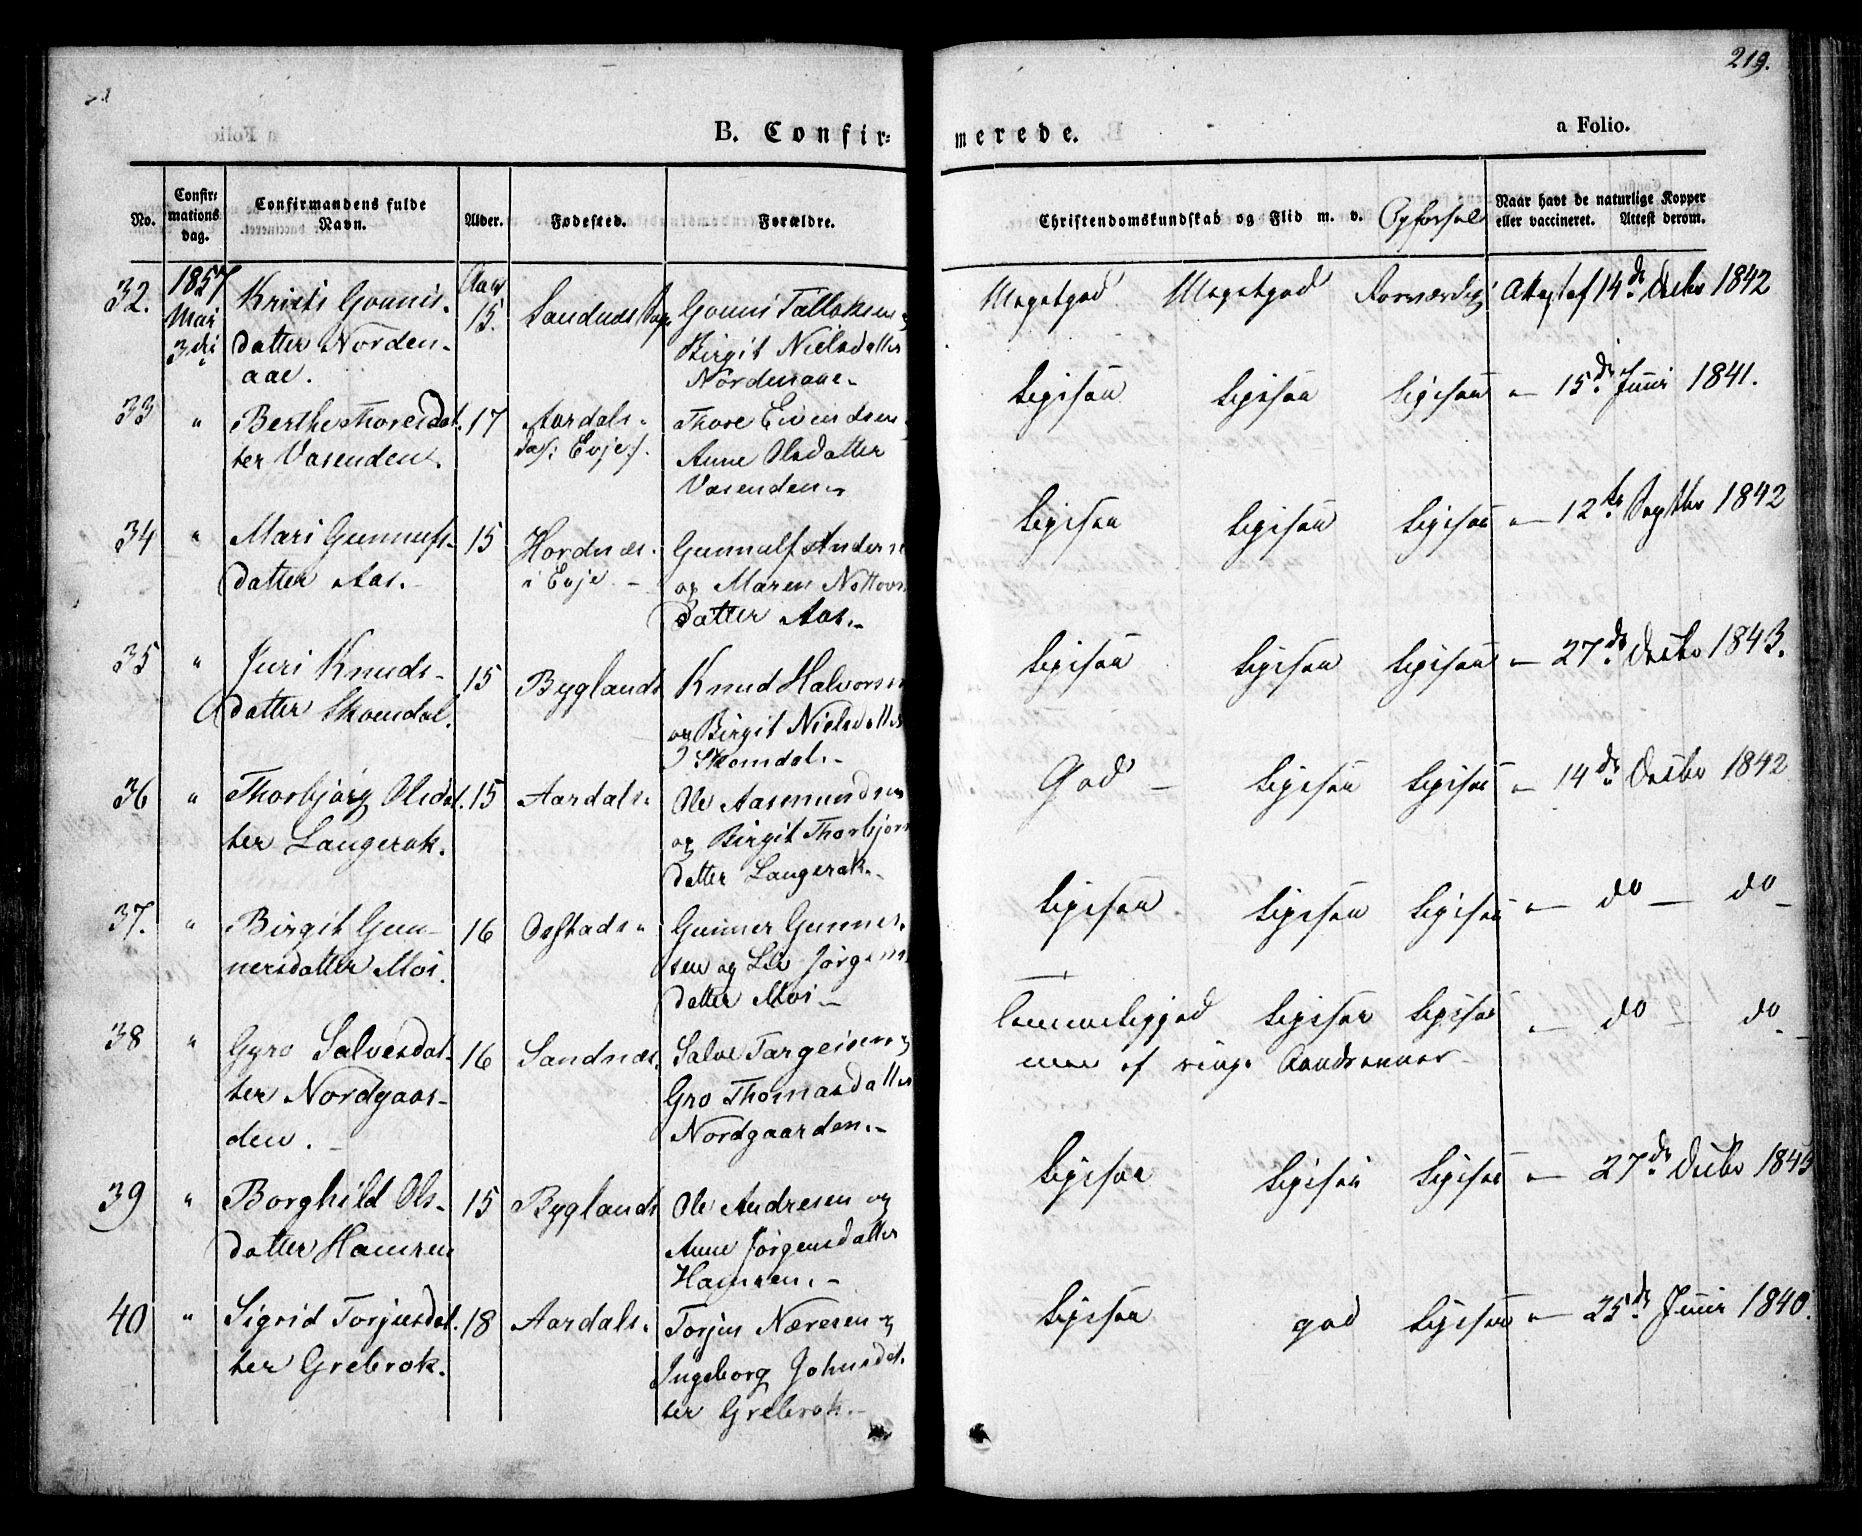 219.
B. Confir-
merede.
a Folio.
No.
Confir-
mations
dag.
Confirmandens fulde
Navn.
Alder.
Fødested.
Forældre.
Christendomskundskab og Flid m. v. Opførsel
Naar havt de naturlige Kopper
eller vaccineret. Attest derom.
32.
1857
Mai
3die
Kristi Gounis-
datter Norden-
aae.
Aar
15.
Sandnæs Sogn
Gouni Tallaksen og
Birgit Nielsdatter
Nordenaae
Megetgod Megetgod Rosværdig Attest af 14de Decbr 1842
33 " Berthe Thoresdat-
ter Vasenden.
17
Aardals
/: Evje :/.
Thore Evendsen
Anne Olsdatter
Vasenden
Ligesaa Ligesaa Ligesaa — 15de Juni 1841.
34 " Mari Gunnulfs-
datter Aas.
15
Hordnæs
i Evje
Gunnulf Anders
og Maren Nottovs
datter Aas.
Ligesaa Ligesaa Ligesaa — 12te Septbr 1842
35 " Juri Knuds-
datter Skomdal.
15
Byglands
Knud Halvorsen
og Birgit Nielsdatter
Skomdal.
Ligesaa Ligesaa Ligesaa — 27de Decbr 1843.
36 " Thorbjørg Olsdat-
ter Langerak.
15
Aardals
Ole Aasmundsen
og Birgit Thorbjørns
datter Langerak.
God Ligesaa Ligesaa — 14de Decbr 1842
37. " Birgit Gun-
nersdatter Moi.
16
Østads
Gunner Gunners-
sen og Liv Jørgens
datter Moi
Ligesaa Ligesaa Ligesaa — do — do —
38 " Gyro Salvesdat-
ter Nordgaar-
den.
16
Sandnæs.
Salve Targeisen og
Gro Thomasdatter
Nordgaarden.
Temmeliggod Ligesaa Ligesaa — do — do —
men af ringe Aandsevner
39 " Borghild Ols-
datter Hamren
15
Byglands
Ole Andresen og
Anne Jørgensdatter
Hamren.
Ligesaa Ligesaa Ligesaa — 27de Decbr 1843
40 " Sigrid Torjusdat-
ter Grebrok.
18
Aardals.
Torjus Næresen og
Ingeborg Johnsdat-
ter Grebrok.
Ligesaa god Ligesaa — 25de Juni 1840.